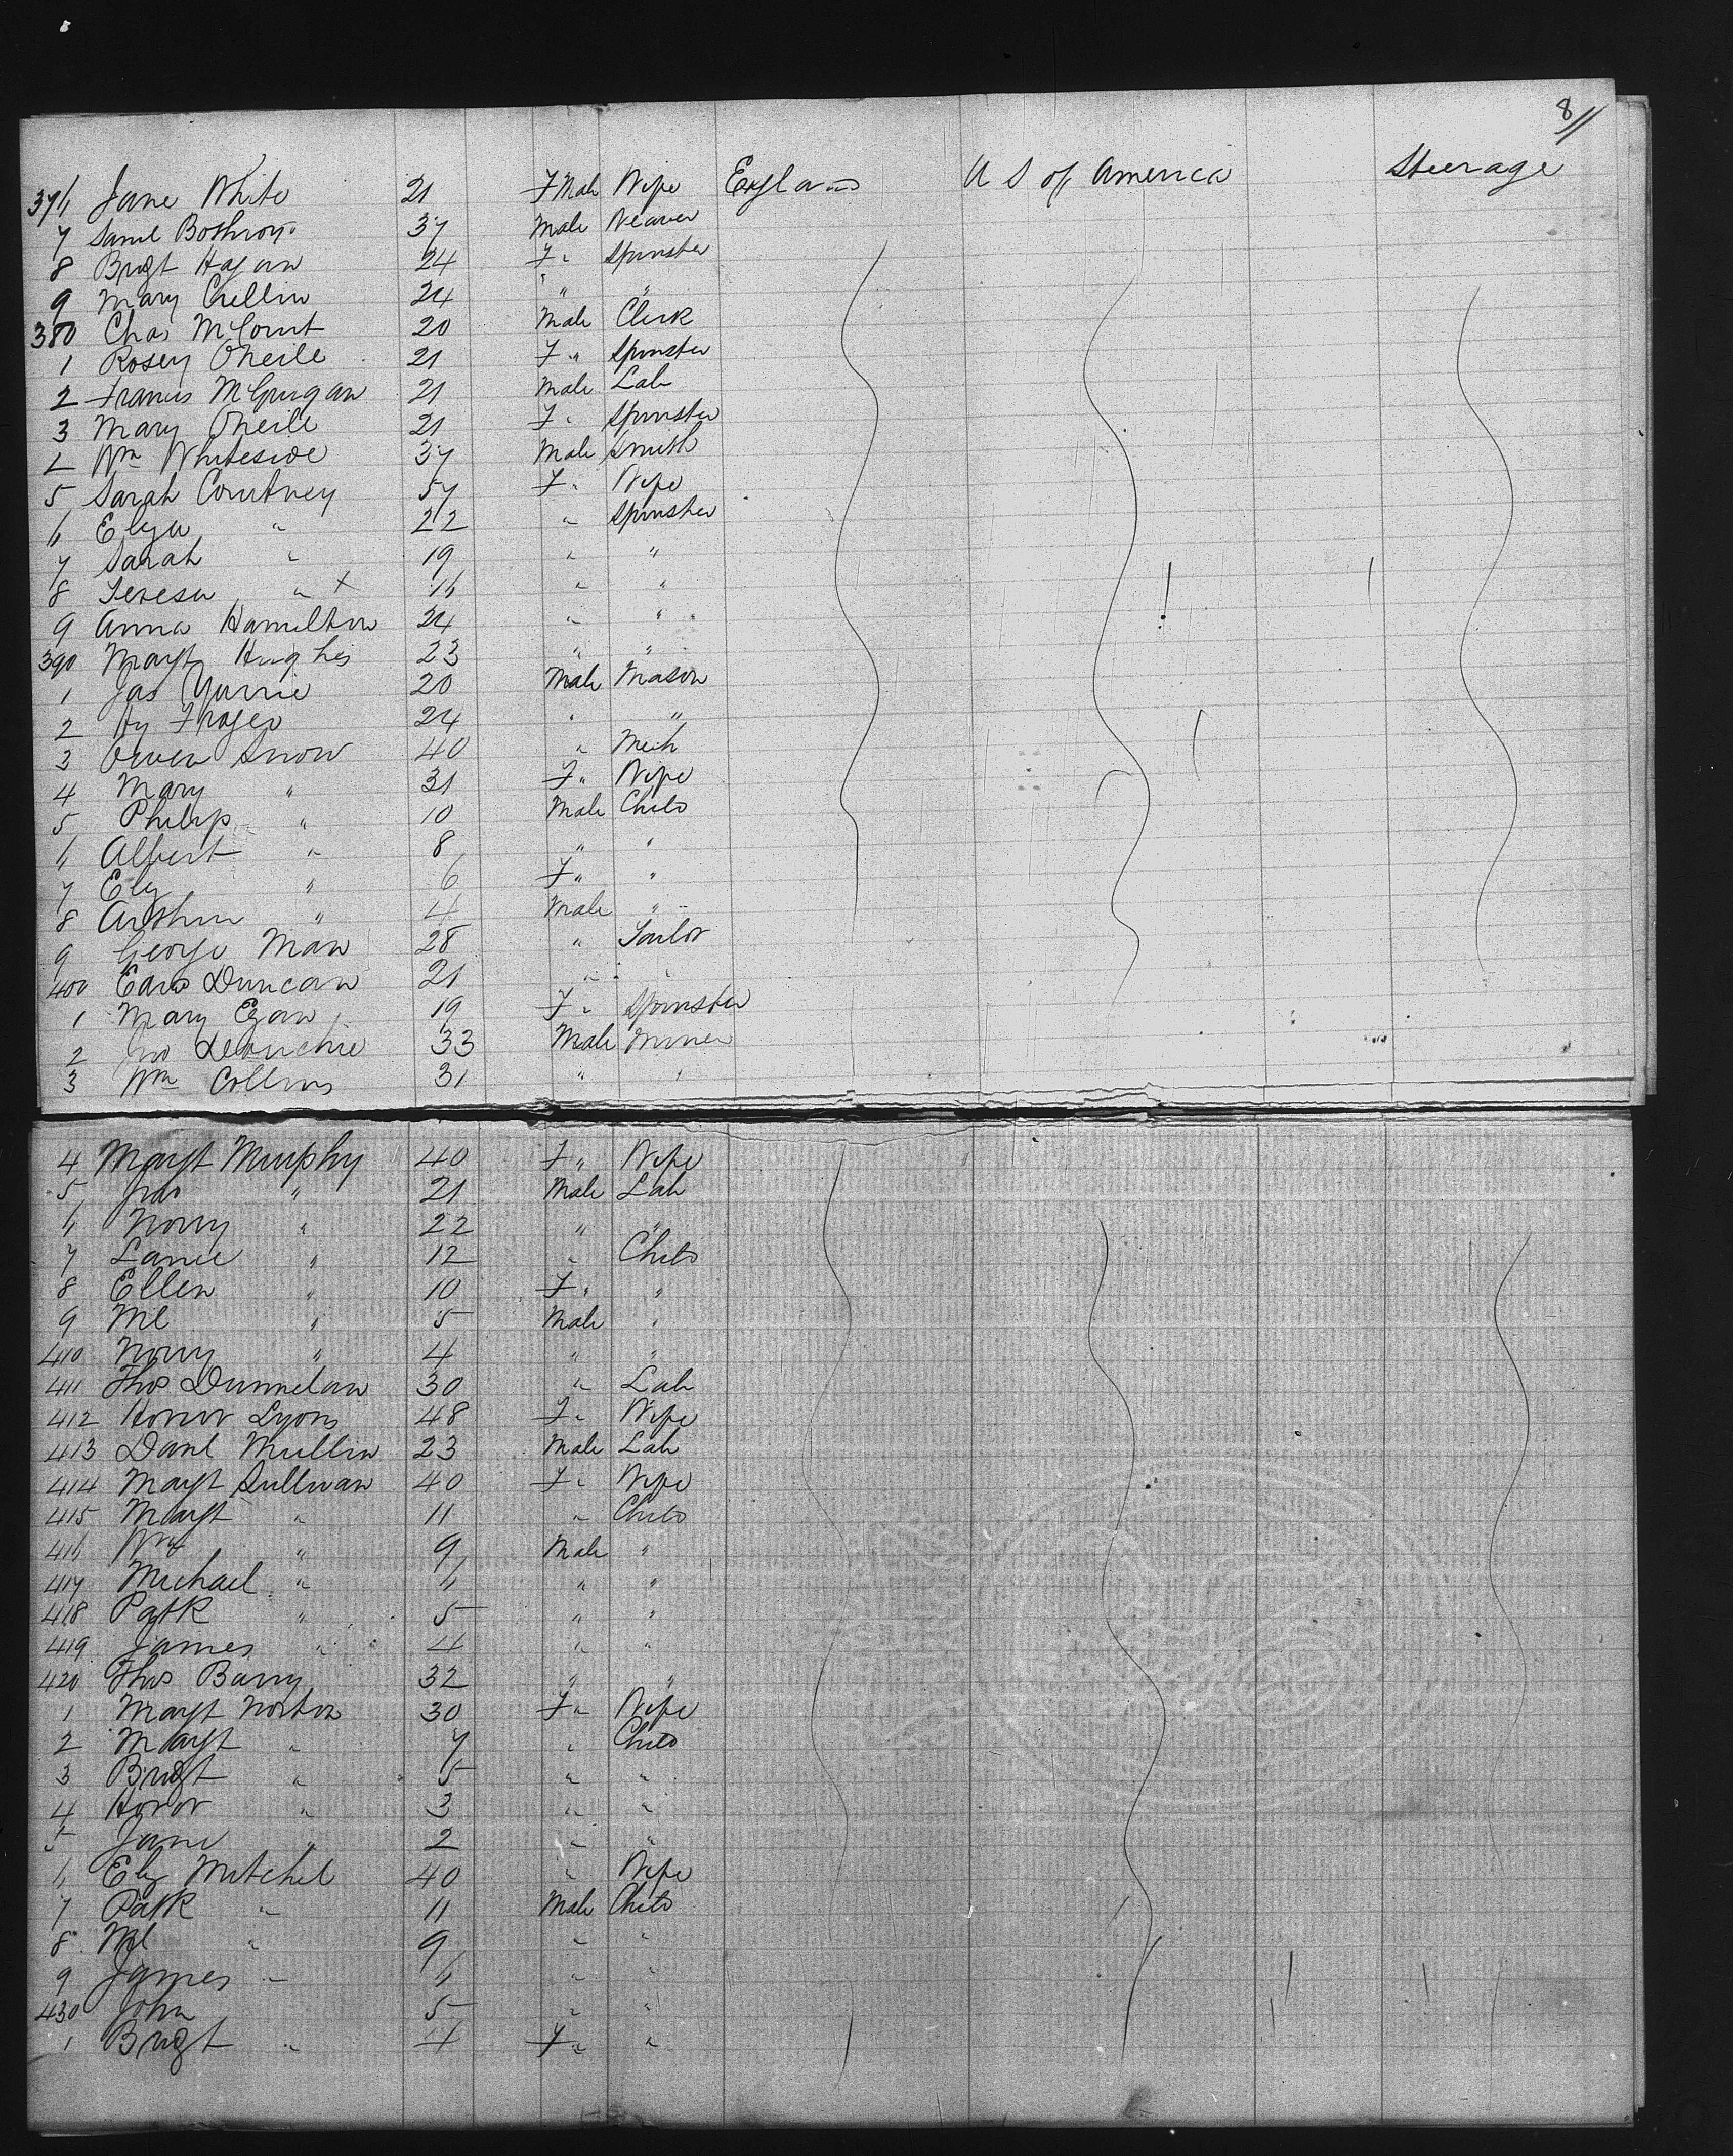 8//
376 Jane White 21 FMale Wife England U S of America Steerage
7 Saml Bothroy 37 Male Weaver
8 Brigt Hagan 24 F " Spinster
9 Mary Crellin 24 " "
380 Chas McCourt 20 Male Clerk
1 Rosey ONeile 21 F " Spinster
2 Francis McGrugan 21 Male Lab
3 Mary ONeile 21 F " Spinster
4 Wm Whiteside 37 Male Smith
5 Sarah Courtney 57 F " Wife
6 Eliza " 22 " Spinster
7 Sarah " 19 " "
8 Teresa " x 16 " "
9 Anna Hamilton 24 " "
390 Margt Hughes 23 " "
1 Jas 20 Male Mason
2 Hy Frazer 24 " "
3 Owen Snow 40 " Mech
4 Mary " 31 F " Wife
5 Philip " 10 Male Child
6 Albert " 8 " "
7 Eliz " 6 F " "
8 Arthur " 4 Male "
9 George Maw 28 " Tailor
400 Edwd Duncan 21 " "
1 Mary Egan 19 F " Spinster
2 Jno 33 Male Miner
3 Wm Collins 31 " "
4 Margt Murphy 40 F " Wife
5 Jno " 21 Male Lab
6 Norry " 22 " "
7 " 12 " Child
8 Ellen " 10 F " "
9 Ml " 5 Male "
410 Norry " 4 " "
411 Thos Dunnelan 30 " Lab
412 Honor Lyons 48 F " Wife
413 Danl Mullin 23 Male Lab
414 Margt Sullivan 40 F " Wife
415 Margt " 11 " Child
416 Wm " 9 Male "
417 Michael " 6 " "
418 Patk " 5 " "
419 James " 4 " "
420 Thos Barry 32 " "
1 Margt Norton 30 F " Wife
2 Margt " 7 " Child
3 Brigt " 5 " "
4 Honor " 3 " "
5 Jane " 2 " "
6 Eliz Mitchel 40 " Wife
7 Patk " 11 Male Child
8 Ml " 9 " "
9 James " 6 " "
430 John 5 " "
1 Brigt " 4 F " "